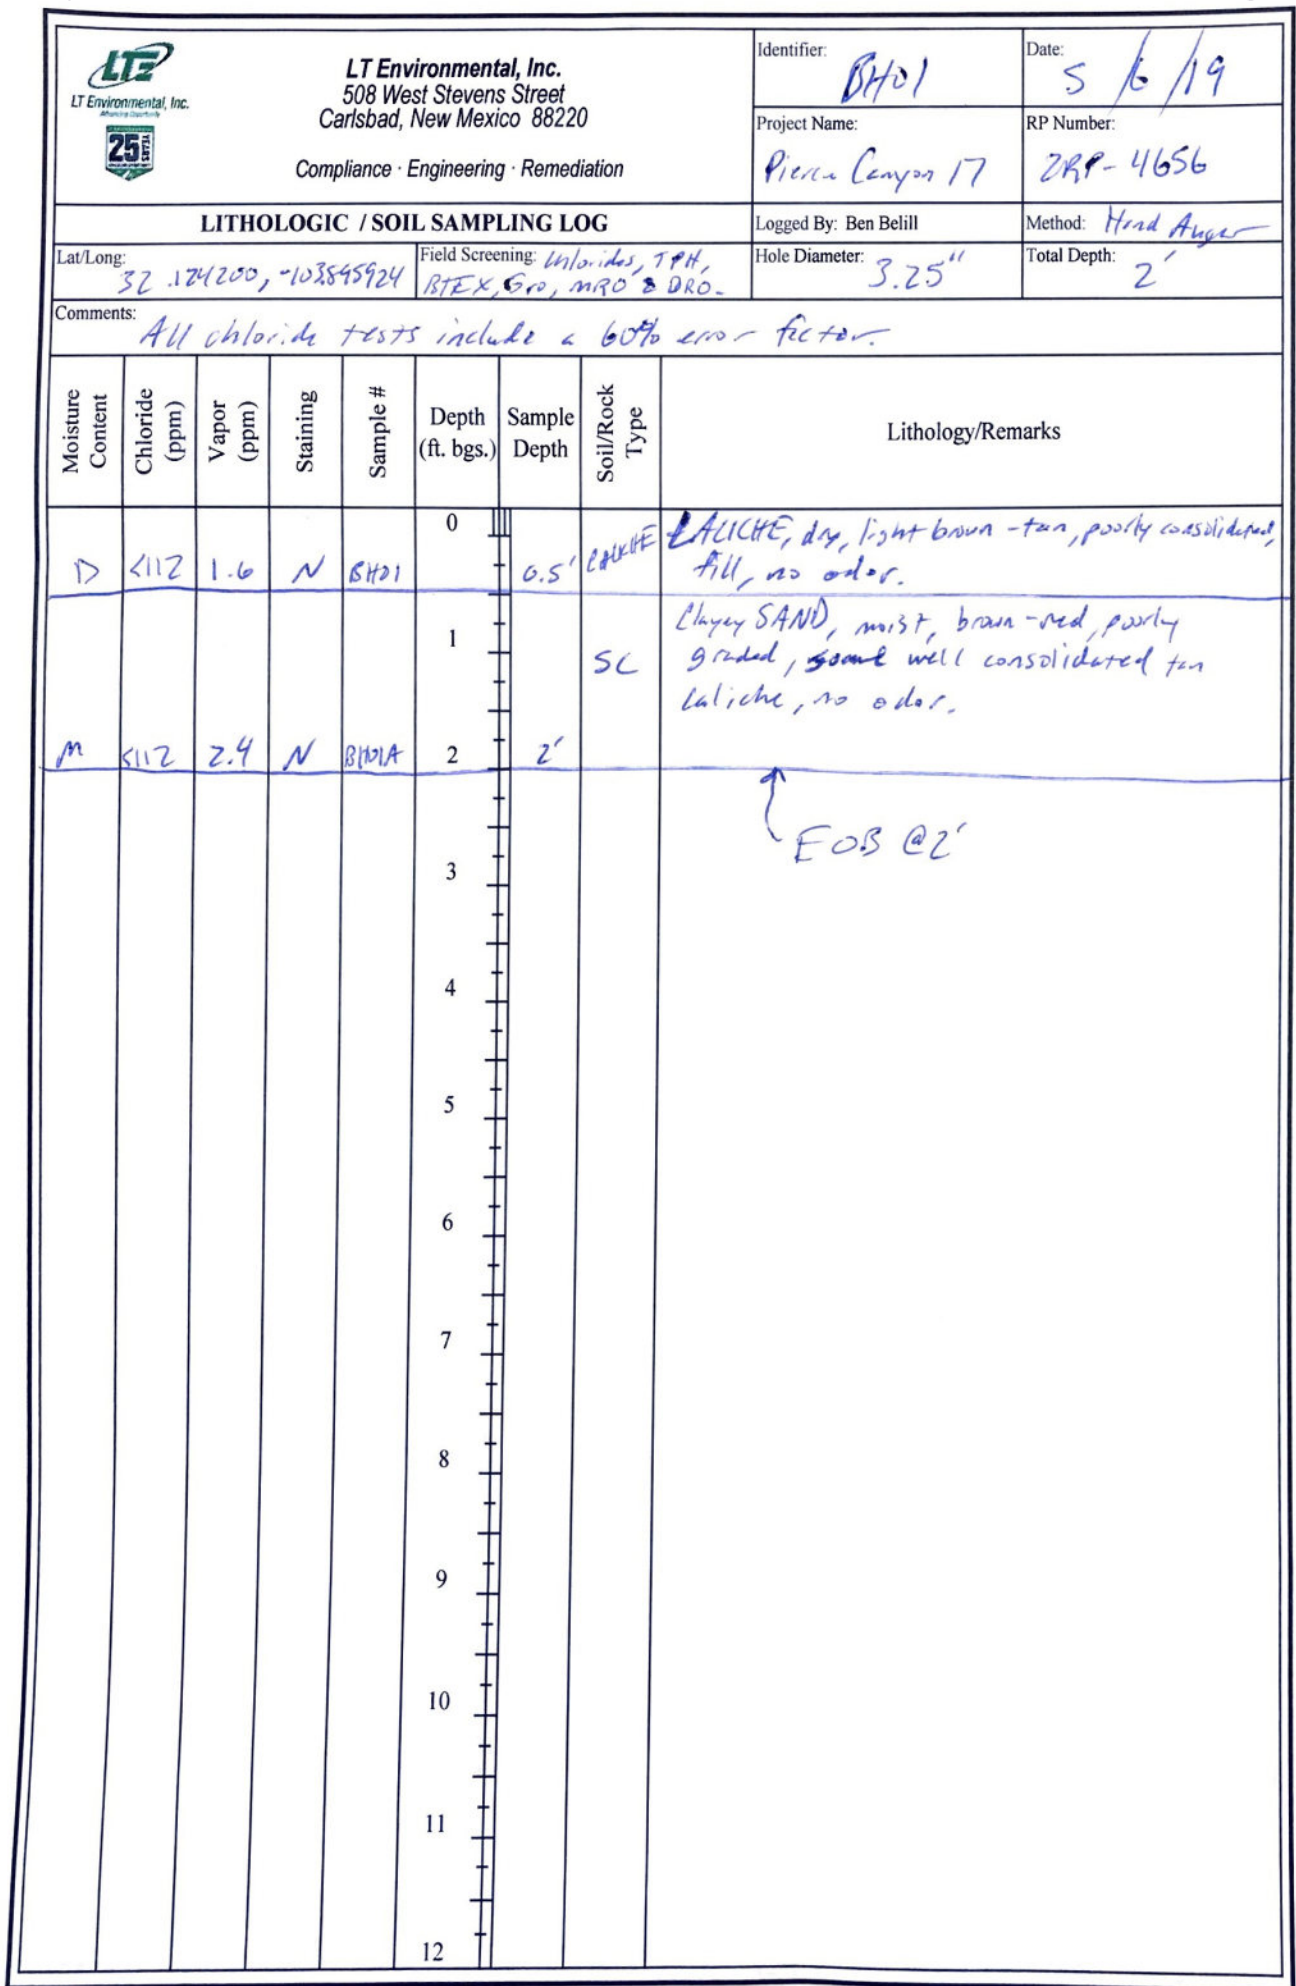 LTE
LT Environmental, Inc.
Advancing Opportunity
25 YEARS
LT Environmental, Inc.
508 West Stevens Street
Carlsbad, New Mexico 88220
Compliance · Engineering · Remediation
Identifier: BH01
Date: 5/6/19
Project Name: Pierce Canyon 17
RP Number: 2RP-4656
LITHOLOGIC / SOIL SAMPLING LOG
Logged By: Ben Belill
Method: Hand Auger
Lat/Long: 32.124200, -103.845924
Field Screening: Chlorides, TPH,
BTEX, Gro, MRO & DRO.
Hole Diameter: 3.25"
Total Depth: 2'
Comments: All chloride tests include a 60% error factor.
Moisture Content
Chloride (ppm)
Vapor (ppm)
Staining
Sample #
Depth (ft. bgs.)
Sample Depth
Soil/Rock Type
Lithology/Remarks
0
D <112 1.6 N BH01 0.5' CALICHE CALICHE, dry, light brown-tan, poorly consolidated,
fill, no odor.
1 SC Clayey SAND, moist, brown-red, poorly
graded, some well consolidated tan
caliche, no odor.
M <112 2.4 N BH01A 2 2'
EOB @2'
3
4
5
6
7
8
9
10
11
12